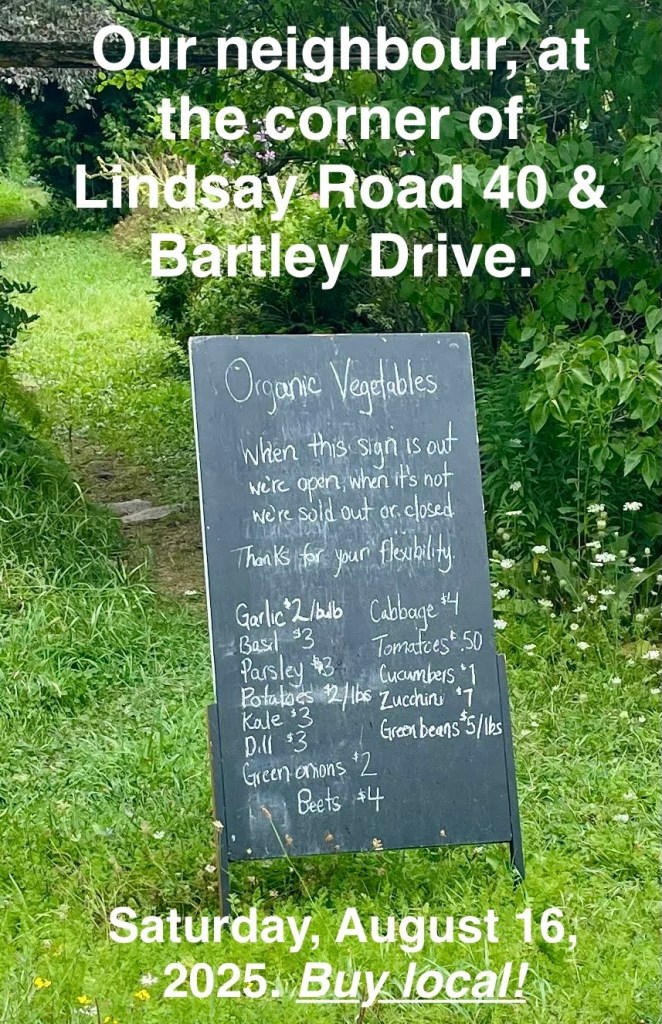 Our neighbour, at
the corner of
Lindsay Road 40 &
Bartley Drive.
Organic Vegetables
When this sign is out
we're open, when it's not
we're sold out or closed
Thanks for your flexibility.
Garlic $2/bulb
Basil $3
Parsley $3
Potatoes $2/lbs
Kale $3
Dill $3
Green onions $2
Beets $4
Cabbage $4
Tomatoes $.50
Cucumbers $1
Zucchini $1
Green beans $5/lbs
Saturday, August 16,
2025. Buy local!